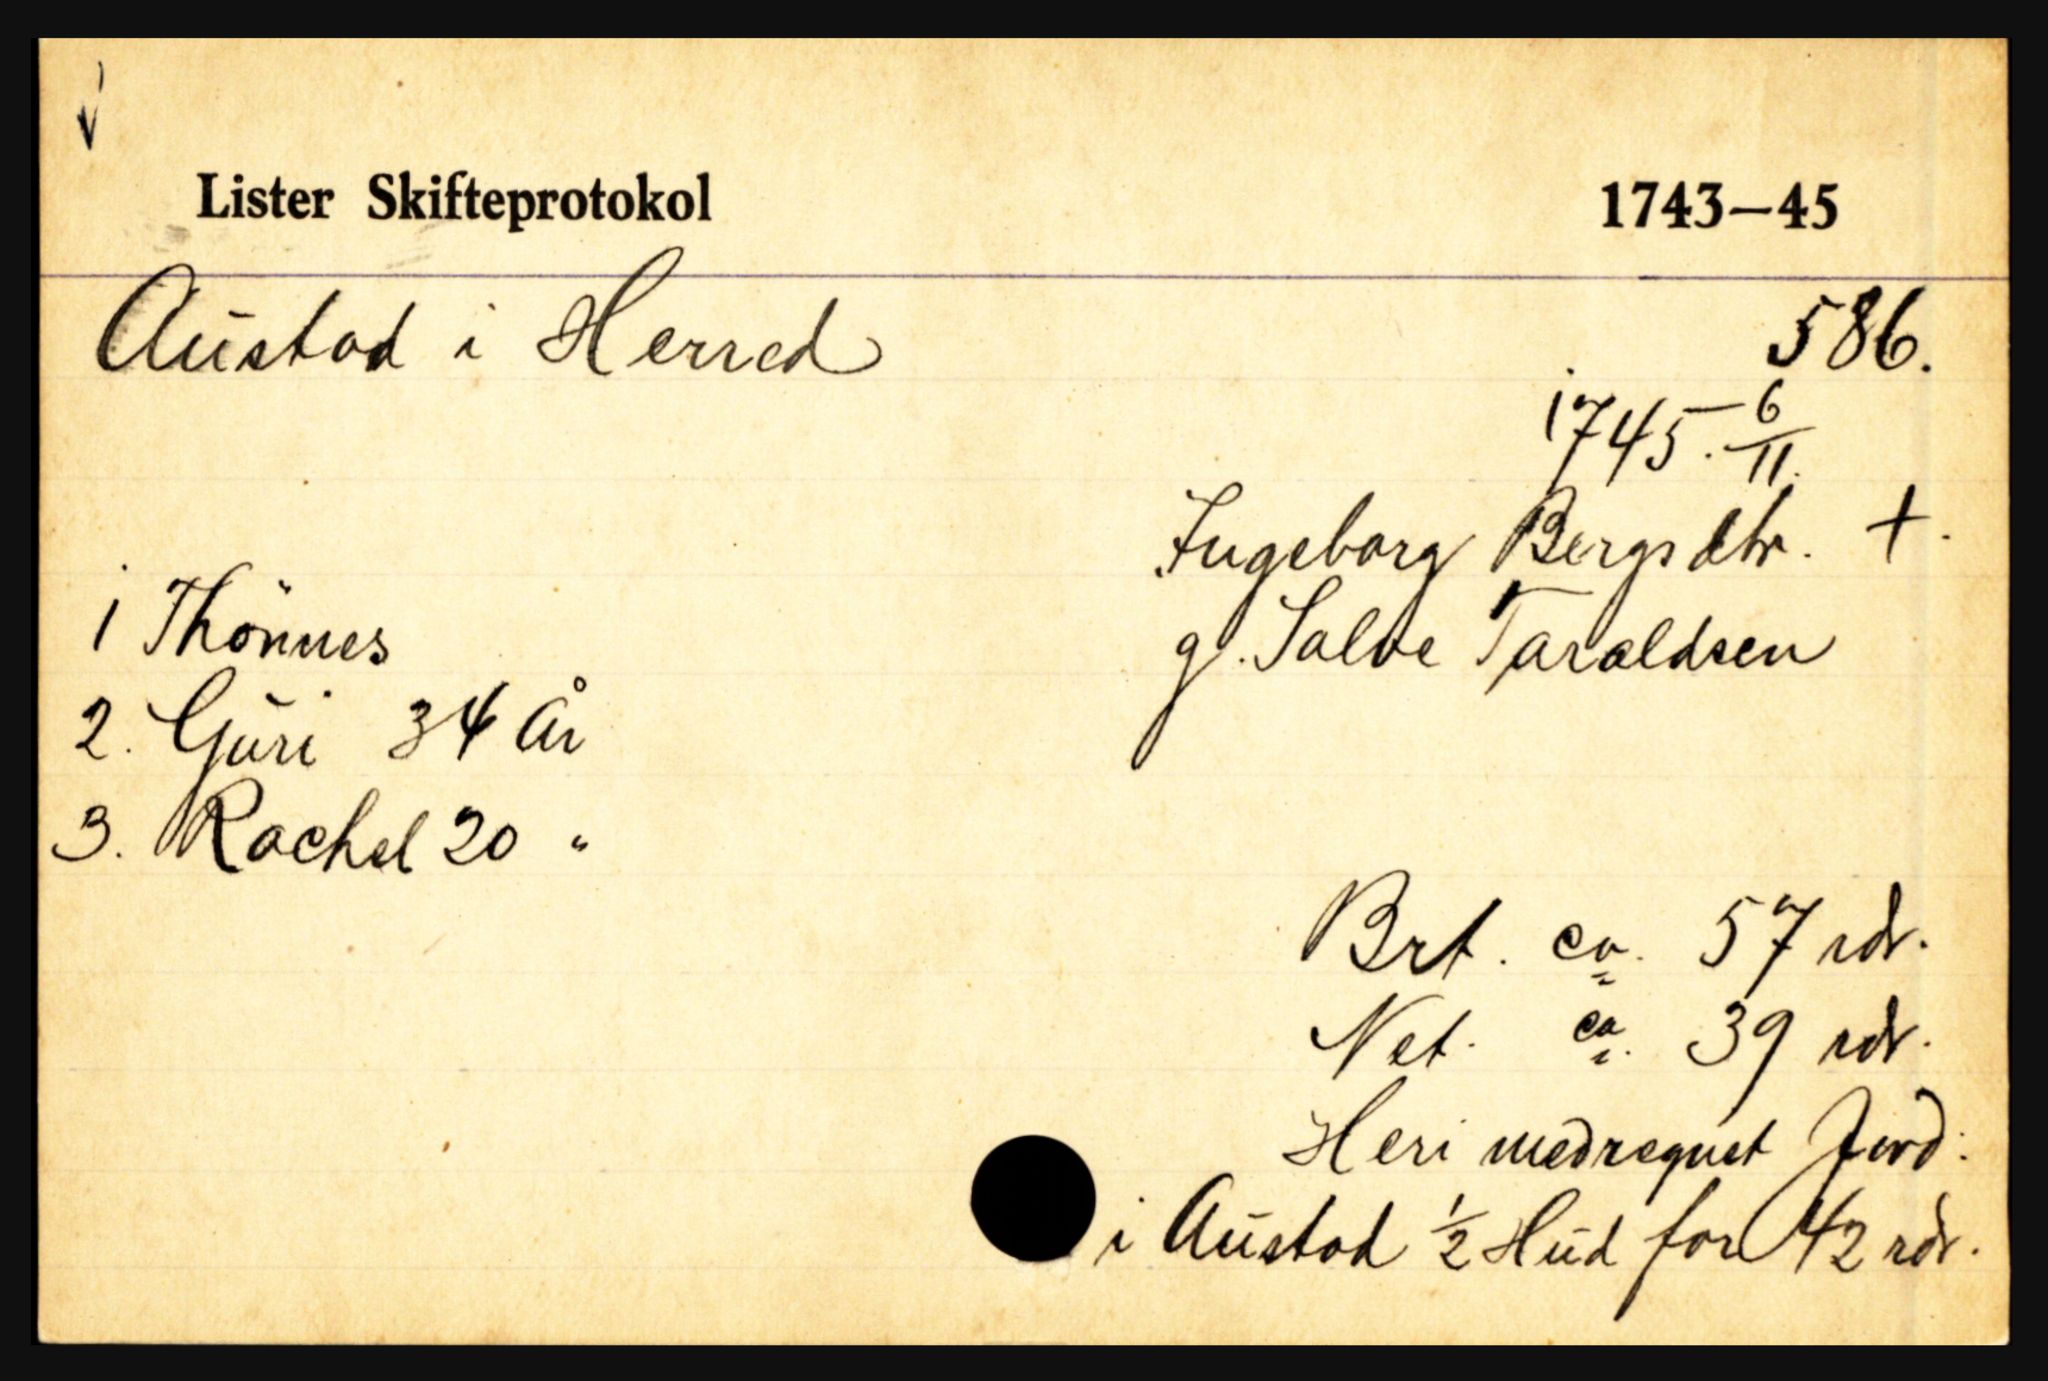 Lister Skifteprotokol 1743–45
Austad i Herred 586.
1745. 6/11.
Ingeborg Bergsdtr. +.
g. Salve Taraldsen
1 Thönnes
2. Guri 34 År
3. Rachel 20 "
Brt. ca. 57 rdr.
Net. ca. 39 rdr.
Heri medregnet Jord:
i Austad 1/2 Hud for 42 rdr.